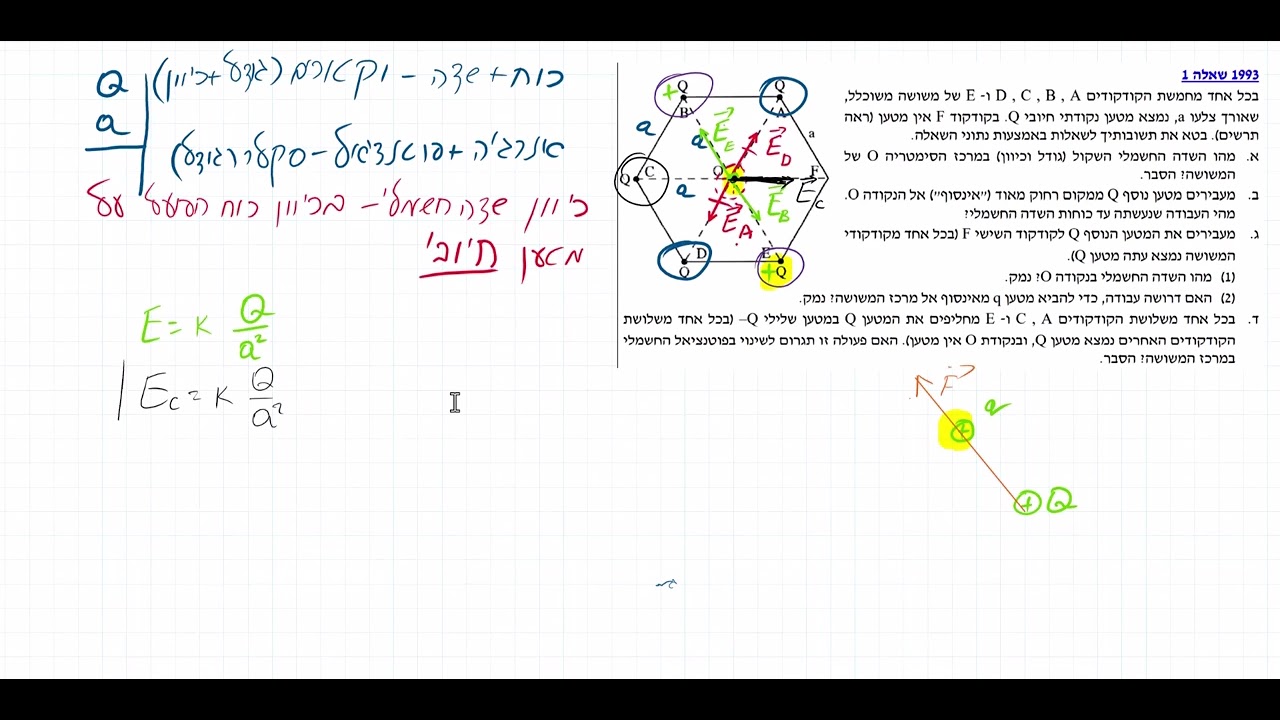 Q
a
כוח + שדה - וקטורים (גודל + כיוון)
אנרגיה + פוטנציאל - סקלר (גודל)
כיוון שדה חשמלי - בכיוון כוח הפועל על
מטען חיובי
E = K Q/a²
E_C = K Q/a²
1993 שאלה 1
בכל אחד מחמשת הקודקודים D , C , B , A ו- E של משושה משוכלל,
שאורך צלעו a, נמצא מטען נקודתי חיובי Q. בקודקוד F אין מטען (ראה
תרשים). בטא את תשובותיך לשאלות באמצעות נתוני השאלה.
א. מהו השדה החשמלי השקול (גודל וכיוון) במרכז הסימטריה O של
המשושה? הסבר.
ב. מעבירים מטען נוסף Q ממקום רחוק מאוד ("אינסוף") אל הנקודה O.
מהי העבודה שנעשתה עד כוחות השדה החשמלי?
ג. מעבירים את המטען הנוסף Q לקודקוד השישי F (בכל אחד מקודקודי
המשושה נמצא עתה מטען Q).
(1) מהו השדה החשמלי בנקודה O? נמק.
(2) האם דרושה עבודה, כדי להביא מטען q מאינסוף אל מרכז המשושה? נמק.
ד. בכל אחד משלושת הקודקודים C , A ו- E מחליפים את המטען Q במטען שלילי Q– (בכל אחד משלושת
הקודקודים האחרים נמצא מטען Q, ובנקודת O אין מטען). האם פעולה זו תגרום לשינוי בפוטנציאל החשמלי
במרכז המשושה? הסבר.
Q Q
+
B A
a E_E a
a E_D
Q C O F
a E_C
E_B
E_A
D E
Q + Q
F
q
+
+ Q